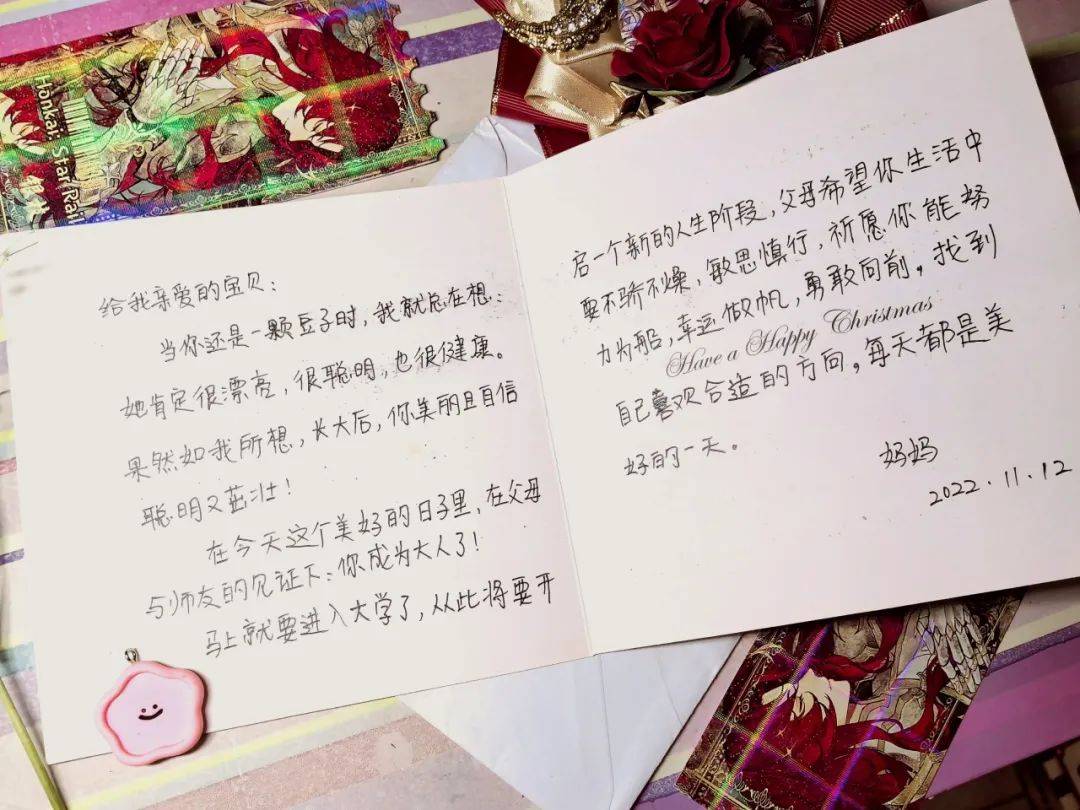 Honkai: Star Rail
给我亲爱的宝贝：
当你还是一颗豆子时，我就总在想：
她肯定很漂亮，很聪明，也很健康。
果然如我所想，长大后，你美丽且自信
聪明又茁壮！
在今天这个美好的日子里，在父母
与师友的见证下：你成为大人了！
马上就要进入大学了，从此将要开
启一个新的人生阶段，父母希望你生活中
要不骄不燥，敏思慎行，祈愿你能努
力为船，幸运做帆，勇敢向前。找到
Have a Happy Christmas
自己喜欢合造的方向。每天都是美
好的一天。
妈妈
2022.11.12